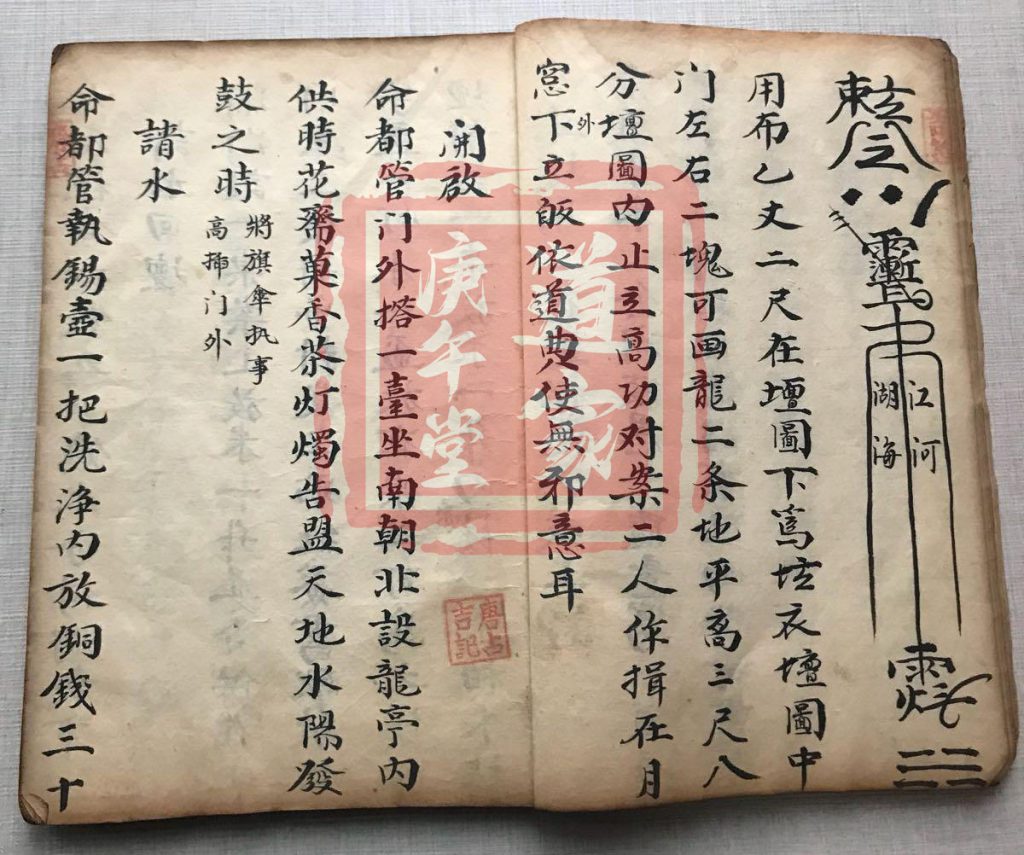 敕令
江河
湖海
用布乙丈二尺在壇圖下篤坛衣壇圖中
门左右二塊可画龍二条地平高三尺八
分壇圖内止立高功对案二人作揖在月
窓下外立皈依道典使無邪意耳
開啟
命都管门外搭一臺坐南朝北設龍亭内
供時花齋菓香茶灯燭告盟天地水陽發
鼓之時將旗傘执事
高掃门外
請水
命都管執錫壺一把洗浄内放銅錢三十
道家
庚午堂
唐占
吉記